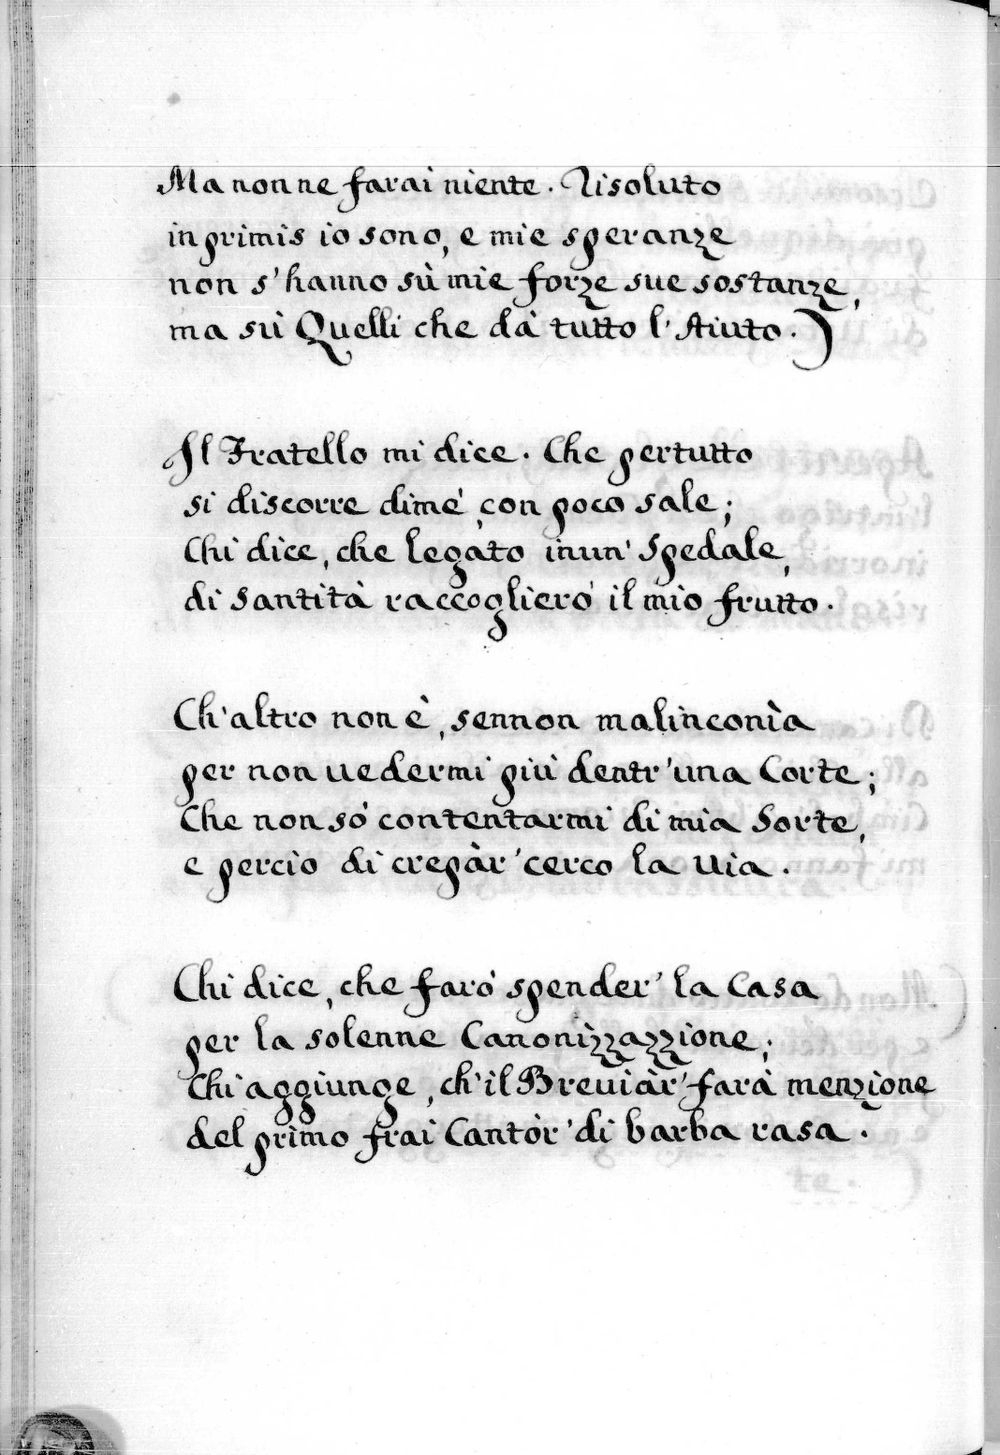 Ma non ne farai niente. Risoluto
in primis io sono, e mie speranze
non s'hanno sù mie forze sue sostanze,
ma sù Quelli che dà tutto l'Aiuto.)
Il Fratello mi dice. Che pertutto
si discorre dimé, con poco sale;
Chi dice, che legato inun' Spedale,
di Santità raccoglieró il mio frutto.
Ch'altro non è, sennon malinconìa
per non uedermi piú dentr'una Corte;
Che non só contentarmi di mia Sorte,
e perciò di crepàr' cerco la Uia.
Chi dice, che faró spender' la Casa
per la solenne Canonizzazzione;
Chi aggiunge, ch'il Breviàr' farà menzione
del primo frai Cantòr' di barba rasa.